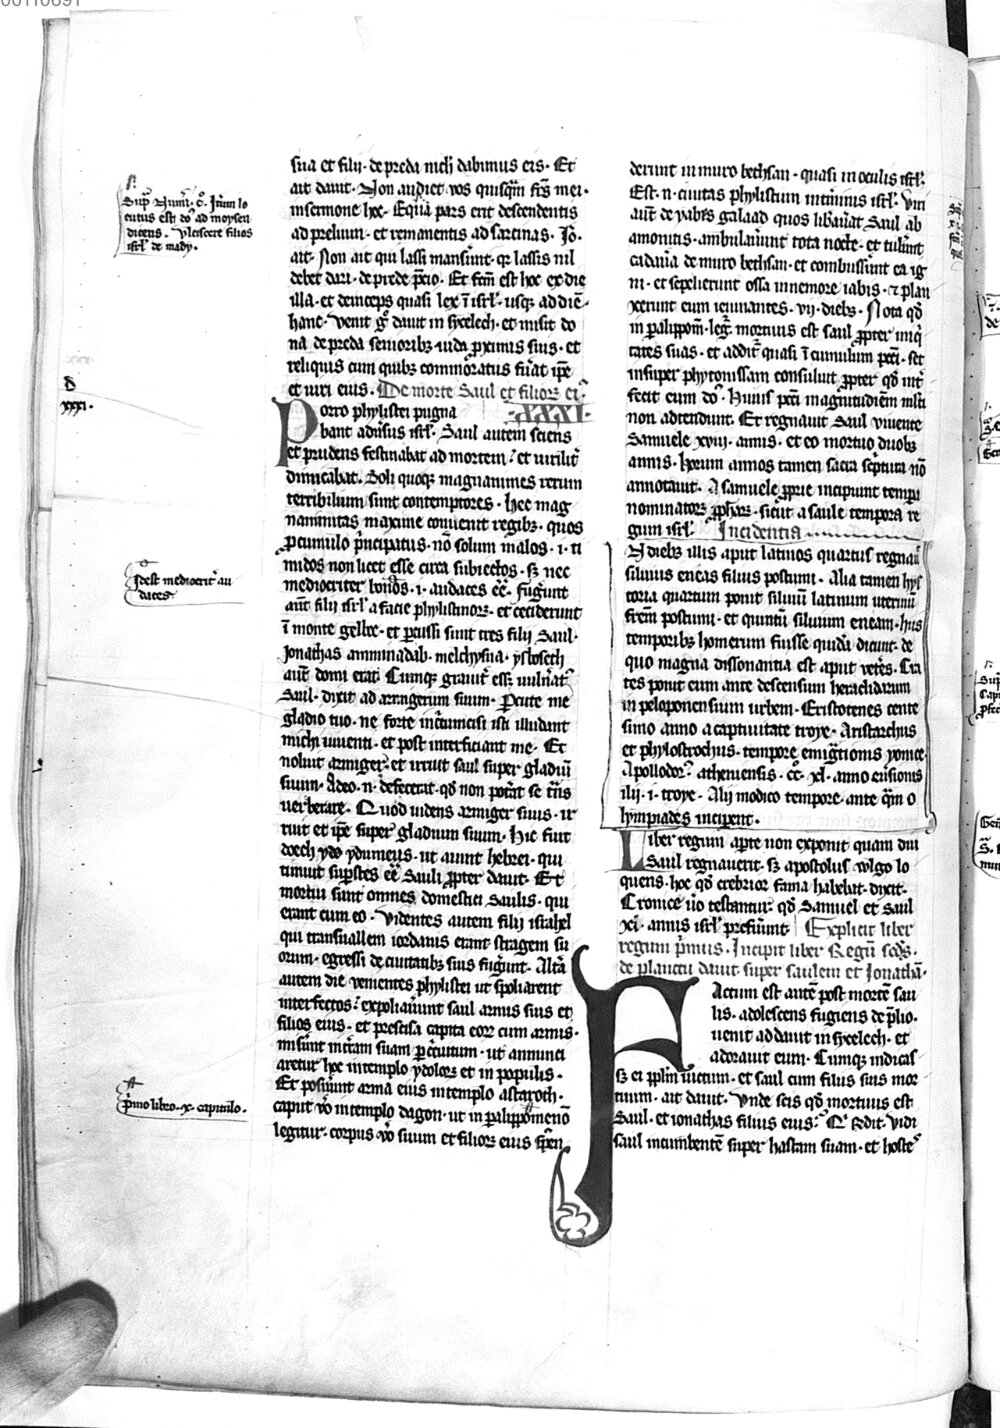 sua et filii · de preda nichil dabimus eis · Et
ait dauit · Non audiet vos quisq̃m sup̲ mei ·
in sermone hoc · Equa pars erit descendentis
ad prelium · et remanentis ad sarcinas · Io ·
ait · Non ait qui lassi mansũnt · qr lassis nil
debet dari · de prede p̃cio · Et fc̃m est hoc ex die
illa · et deinceps quasi lex ĩ isrl̃ · usq; ad diẽ
hanc · Venit g̊ dauit in sycelech · et misit do
na de preda senioribꝫ iuda ꝓximis suis · et
reliquis cum quibꝫ commoratus fũat ip̃e
et uiri eius · De morte Saul et filioꝝ eiꝰ
Porro phylistei pugna
bant adũsus isrl̃ · Saul autem sciens
et prudens festinabat ad mortem · et uirilit̃
dimicabat · Soli quoqꝫ magnanimes rerum
terribilium sunt contemptores · Hec mag
nanimitas maxime conuenit regibꝫ · quos
ꝓ cumulo p̃ncipatus · nõ solum malos · i · ti
midos non licet esse circa subiectos · sꝫ nec
mediocriter bonos · i · audaces eẽ · fug̃unt
aũt filii isrl̃ a facie phylistinoꝝ · et ceciderunt
ĩ monte gelboe · et ꝑcussi sunt tres filii Saul ·
Jonathas aminadab · melchysua · ysboseth
aũt domi erat · Cumqꝫ grauit̃ essꝫ uuln̾atꝰ
Saul · dixit ad armigerum suum · Percute me
gladio tuo · ne forte incircumcisi isti illudant
michi uiuenti · et post interficiant me · Et
noluit armiger · et irruit saul super gladiũ
suum · Adeo · n̾ defecerat · qd̾ non pot̾at se tñs
uerberare · Quod uidens armiger suus · ir
ruit et ip̃e super gladium suum · Hic fuit
doech ydo ydumeus · ut aiunt hebrei · qui
timuit sup̃stes eẽ Sauli ꝓpter dauit · Et
mortui sunt omnes domestici Saulis · qui
erant cum eo · Videntes autem filii israhel
qui trans uallem iordanis erant stragem su
orum · egressi de ciuitatibꝫ suis fug̃unt · Altã
autem die uenientes phylistei ut spoliarent
interfectos · expoliauũnt saul armis suis et
filios eius · et precisa capita eoꝝ cum armis ·
misũnt in terram suam ꝑ circuitum · ut annunci
aretur hoc in templo ydoloꝝ et in populis ·
Et posũunt arma eius in templo astaroth ·
caput v̊o in templo dagon · ut in paralippomenõ
legitur · corpus v̊o suum et filioꝝ eius suspen
derunt in muro bethsan · quasi in oculis isrl̃ ·
Est · n̾ · ciuitas phylistium intimius isrl̃ · Viri
aũt de yabes galaad quos libãuat Saul ab
amonitis · ambulauũnt tota nocte · et tulũnt
cadaũa de muro bethsan · et combussũnt ea ig
ni · et sepelierunt ossa in nemore iabis · et plan
xerunt eum ieiunantes · vij · diebꝫ · Nota qd̾
in paralippom̃ · leg̃r mortuus est saul ꝓpter iniq̃
tates suas · et addit̃ quasi ĩ cumulum pcc̃i · set
insuper phytonissam consuluit ꝓpter qd̾ int̃
fecit eum do̾ · Huius pcc̃i magnitudinem multi
non adtendunt · Et regnauit Saul viuente
Samuele xviij · annis · et eo mortuo duobꝫ
annis · horum annos tamen sacra sc̃ptura nõ
annotauit · A samuele ꝓprie incipiunt tempora
nominatoꝝ ꝓphaꝝ · sicut a saule tempora re
gum isrl̃ · Incidentia
N diebꝫ illis aput latinos quartus regnauit
siluius eneas filius postumi · Alia tamen hys
toria quartum ponit siluiũ latinum uterinũ
frẽm postumi · et quintũ siluium eneam · hiis
temporibꝫ homerum fuisse quidã dicunt · de
quo magna dissonantia est aput vet̃es · Cra
tes ponit eum ante descensum heraclidarum
in peloponensium urbem · Eristotenes cente
simo anno a captiuitate troye · Aristarchus
et phylostrochus · tempore emigrationis yonice
Apollodorꝰ atheniensis · cc · xl · anno euersionis
ilij · i · troye · Alij modico tempore ante q̃m o
lympiades inciperent ·
Liber regum aperte non exponit quam diu
Saul regnauerit · sꝫ apostolus uulgo lo
quens · hoc qd̾ crebrior fama habebat · dixit ·
Cronice uo testantur qd̾ Samuel et Saul
xl · annis isrl̃ prefũunt · Explicit liber
regum p̃mus · Incipit liber Regũ scd̾s
de planctu dauit super saulem et Ionathã ·
Factum est autẽ post mortẽ sau
lis · adolescens fugiens de p̃lio ·
uenit ad dauit in sycelech · et
adorauit eum · Cumqꝫ indicas
sꝫ ei ppl̃m uictum · et saul cum filiis suis mor
tuum · ait dauit · Vnde scis qd̾ mortuus est
Saul · et ionathas filius eius · Qui r̃dit · Vidi
saul incumbentẽ super hastam suam · et hostes
Sup̃ Num̃i · c̊ · Dñm lo
cutus est dñs ad moysen
dicens · Vlciscere filios
isrl̃ de mady ·
xxxi ·
Idest mediocrit̃ au
daces
p̃mo libro · x · capitulo ·